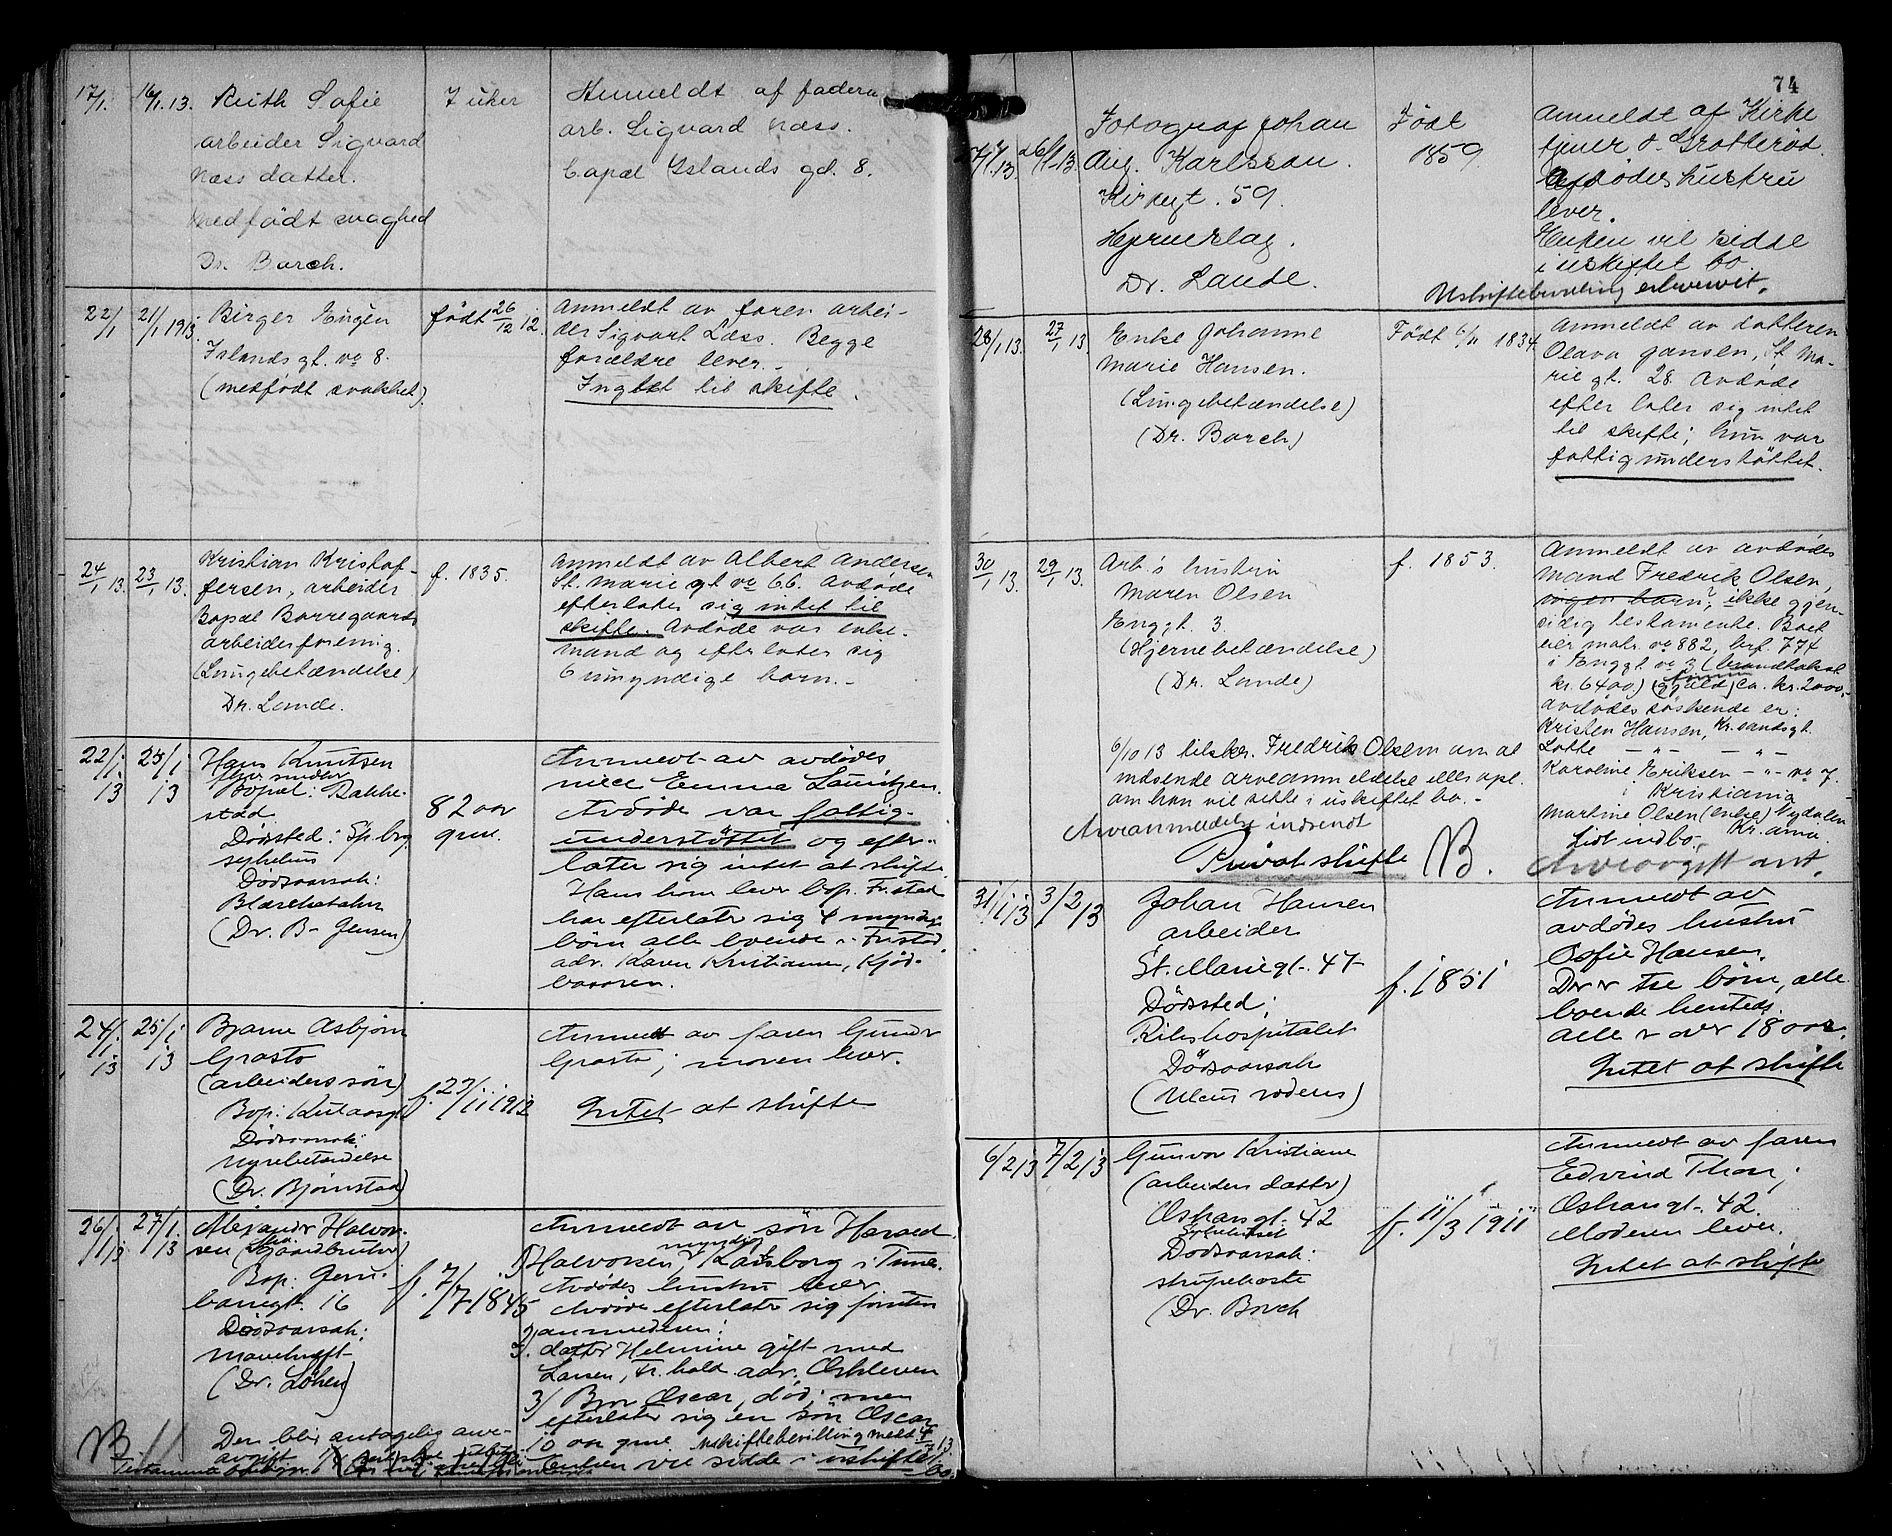 17/1. 16/1.13. Ruth Sofie
arbeider Sigvard
Næss datter.
Medfödt svaghed
Dr. Borch.
7 uker
Anmeldt af faderen
arb. Sigvard Næss.
bopæl Islands gd. 8.
22/1 21/1 1913. Birger Eugen
Islands gt. No 8.
(medfödt svakhet).
født 26/12 12.
Anmeldt av faren arbei-
der Sigvart Læss. Begge
forældre lever.
Intet til skifte.
24/1 13 23/1 13. Kristian Kristof-
fersen, arbeider
Bopæl Borregaards
arbeiderforening.
(Lungebetændelse)
Dr. Lande.
f. 1835.
Anmeldt av Albert Andersen
St. Marie gt No 66. Avdøde
efterlater sig intet til
skifte. Avdøde var enke-
mand og efterlater sig
6 umyndige barn.-
22/1 13 23/1 13 Hans Knutsen
Bopæl: Bakke-
stad
Dødsted: Sp.brg
sykehus
Dødsaarsak:
Blærekatarh
(Dr. B- Jensen)
82 aar
gml.
Anmeldt av avdødes
niece Emma Lauritzen.
Avdøde var fattig-
understöttet og efter-
later sig intet at skifte
Hans kone lever bop. Fr.stad
har efterlatt sig 4 myndige
börn alle boende i Fr.stad
adr. Karen Kristianne, Kjöd-
basaren.
24/1 13 25/1 13 Bjarne Asbjørn
Grasto
(arbeiders søn)
Bop: Kulaasgt
Dödsaarsak:
Nyrebetændelse
(Dr. Bjørnstad)
f. 23/11 1912
Anmeldt av faren Gunder
Grasto; moren lever.
Intet at skifte
26/1 13 27/1. 13 Alexander Halvor-
sen (Gaardbruker)
Bop: Jern-
banegt. 16
Dødsaarsak:
Mavekræft
(Dr. Löken)
f. 7/7 1845
Anmeldt av søn Harald
1) Halvorsen, myndig Karlsborg i Tune.
Avdødes hustru lever
Avdøde efterlater sig foruten
anmelderen:
2. datter Helmine gift med
Larsen, Fr.hald adr. Oskleven
3) Bror Oscar, død, men
efterlater sig en søn Oscar
10 aar gml. Uskiftebevilling medt 4/4 13.
Enken vil sidde i uskiftet
bo.
B
Der blir antagelig arve-
avgift
74
27/1.13. 26/1-13. Fotograf Johan
Aug. Karlsson.
Kirkegt. 59.
Hjerneslag.
Dr. Lande.
Född
1859
Anmeldt af Kirke
tjener O. Grotterød.
Afdødes hustru
lever.
Enken vil sidde
i uskiftet bo.
Uskiftebevilling erhvervet.
28/1 13. 27/1 13 Enke Johanne
Marie Hansen.
(Lungebetændelse)
(Dr. Borch)
Født 6/11 1834.
Anmeldt av datteren
Olava Jansen, St. Ma-
rie gt. 28. Avdøde
efter later sig intet
til skifte; hun var
fattigunderstöttet.
30/1 13. 29/1 13. Arb.s hustru
Maren Olsen
Enggt. 3
(Hjernebetændelse)
(Dr. Lande)
f. 1853.
Anmeldt av avdødes
mand Fredrik Olsen,
ingen barn, ikke gjen-
sidig testamente. Boet
eier matr. No 882, brf. 774
i Enggt No 3 (brandtakst
kr. 6400) (gjæld ca. kr. 2000.-
avdødes søskende er:
Kristen Hansen, Kr.sandsgt.
Lotte — " — — " —
Karoline Eriksen — " — No 7.
i Kristiania
Martine Olsen (enke) Nydalen
Kr.ania.
Lidt indbo.
6/10 13 tilskr. Fredrik Olsen om at
indsende arveanmeldelse eller opl.
om han vil sitte i uskiftet bo.-
Arveanmeldelse indsendt
Privat skifte B.
Arveavgift ant.
31/1 13 3/2 13 Johan Hansen
arbeider
St. Mariegt. 47
Dödsted:
Rikshospitalet
Dödsaarsak
(Ulcus rodens)
f. 1851
Anmeldt av
avdødes hustru
Sofie Hansen.
Der er tre börn, alle
boende hersteds.
alle er over 18 aar.
Intet at skifte
6/2 13 7/2 13 Gunvor Kristiane
(arbeiders datter)
Oskarsgt. 42
Dødsaarsak:
strupehoste
(Dr. Borch
f. 11/3 1911
Anmeldt av faren
Edvind Thon,
Oskarsgt. 42.
Moderen lever.
Intet at skifte